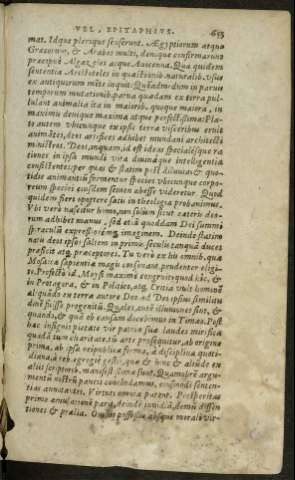 VEL, EPITAPHIVS. 653
mat. Idque plerique senserunt. Ægyptiorum atque
Græcorum, & Arabes multi, denique confirmarunt
præcipuè Algazales atque Auicenna. Qua quidem
sententia Aristoteles in quæstionib. naturalib. vsus
ex antiquorum mente inquit: Quemadmodum in paruis
temporum mutationib. parua quædam ex terra pul-
lulant animalia ita in maiorib. quoque maiora, in
maximis denique maxima atque perfectissima: Pla-
to autem vbicunque ex ipsis terræ visceribus eruit
animantes, dees artifices adhibet mundani architecti
ministros. Deos, inquam, id est ideas specialesque ra-
tiones in ipsa mundi vita diuinaque intelligentia
consistentes: per quas & statim post diluuium & quo-
tidie animantium formentur species vbicunque corpo-
reum speciei eiusdem semen abesse videretur. Quod
quidem fieri oportere satis in theologia probauimus.
Vbi verò nascatur homo, non solum sicut cæteris deo-
rum adhibet manus, sed etiam quoddam Dei summi
spiraculum expressioremque imaginem. Deinde statim
natis deos ipsos saltem in primo seculo tanquam duces
præficit atque præceptores. Tu verò ex his omnib. quæ
Mosaica sapientia magis consonant, prudenter eligi-
to. Profectò id, Moysi maximè congruit quod hîc, &
in Protagora, & in Politico, atque Critia vult homines
aliquando ex terra autore Deo ad Dei ipsius similitu-
dinem fuisse progenitos. Quales autem illuuiones sint, &
quando, & qua ob causam docebimus in Timæo. Post
hæc insignis pietate vir patriæ suæ laudes mirifica
quadam tum charitate, tum arte prosequitur, ab origine
prima, ab ipsa reipublicæ forma, à disciplina quoti-
diana, à reb. egregiè gestis, quæ & hinc & aliunde ex
aliis scriptorib. manifesta sunt. Quamobrem argu-
mentum nostrum paucis concludamus, eiusdemque senten-
tias annotantes. Virtus omnia parent. Prosperitas
primo æmulationem parit, deinde inuidiam, demum dissen-
tiones & prælia. Omnis possessio absque morali vir-